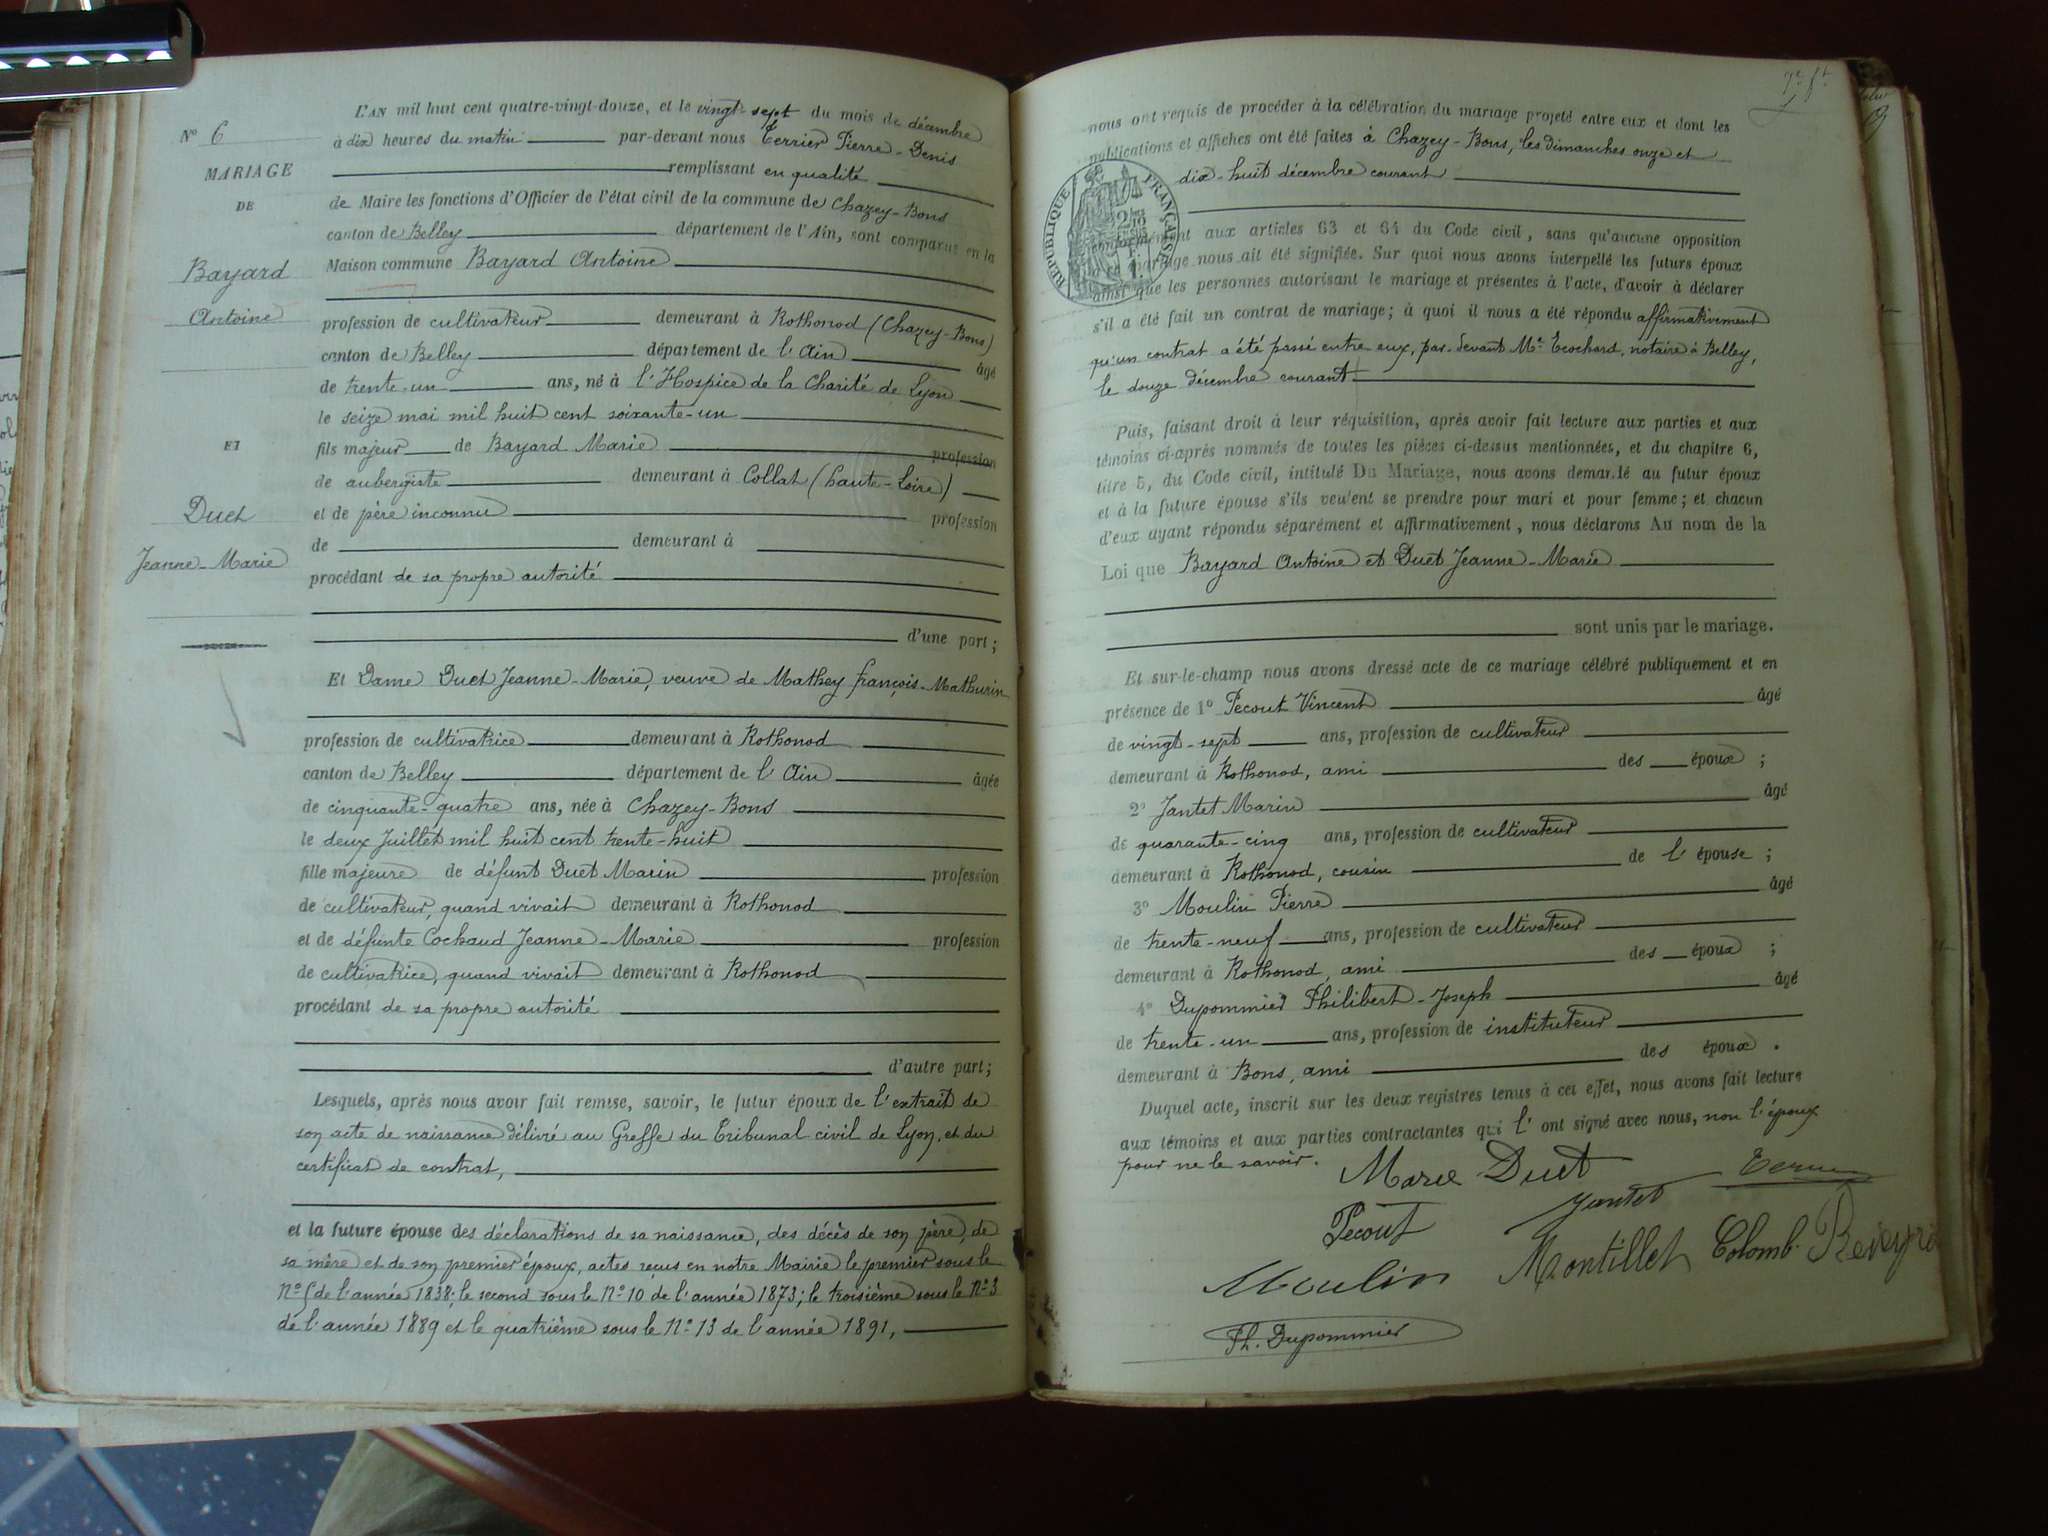 N° 6
MARIAGE
DE
Bayard
Antoine
ET
Duet
Jeanne-Marie
L'AN mil huit cent quatre-vingt-douze, et le vingt-sept du mois de décembre
à dix heures du matin par-devant nous Terrier Pierre-Denis
remplissant en qualité
de Maire les fonctions d'Officier de l'état civil de la commune de Chazey-Bons
canton de Belley département de l'Ain, sont comparus en la
Maison commune Bayard Antoine
profession de cultivateur demeurant à Rothonod (Chazey-Bons)
canton de Belley département de l'Ain âgé
de trente-un ans, né à l'Hospice de la Charité de Lyon
le seize mai mil huit cent soixante-un
fils majeur de Bayard Marie profession
de aubergiste demeurant à Collat (haute-Loire)
et de père inconnu profession
de demeurant à
procédant de sa propre autorité
d'une part;
Et Dame Duet Jeanne-Marie, veuve de Mathey françois-Mathurin
profession de cultivatrice demeurant à Rothonod
canton de Belley département de l'Ain âgée
de cinquante-quatre ans, née à Chazey-Bons
le deux Juillet mil huit cent trente-huit
fille majeure de défunt Duet Marin profession
de cultivateur, quand vivait demeurant à Rothonod
et de défunte Cochaud Jeanne-Marie profession
de cultivatrice, quand vivait demeurant à Rothonod
procédant de sa propre autorité
d'autre part;
Lesquels, après nous avoir fait remise, savoir, le futur époux de l'extrait de
son acte de naissance délivré au Greffe du Tribunal civil de Lyon, et du
certificat de contrat,
et la future épouse des déclarations de sa naissance, des décès de son père, de
sa mère et de son premier époux, actes reçus en notre Mairie le premier sous le
N° 5 de l'année 1838; le second sous le N° 10 de l'année 1873; le troisième sous le N° 3
de l'année 1889 et le quatrième sous le N° 13 de l'année 1891,
nous ont requis de procéder à la célébration du mariage projeté entre eux et dont les
publications et affiches ont été faites à Chazey-Bons, les dimanches onze et
dix-huit décembre courant
RÉPUBLIQUE FRANÇAISE
conformément aux articles 63 et 64 du Code civil, sans qu'aucune opposition
à ce mariage nous ait été signifiée. Sur quoi nous avons interpellé les futurs époux
ainsi que les personnes autorisant le mariage et présentes à l'acte, d'avoir à déclarer
s'il a été fait un contrat de mariage; à quoi il nous a été répondu affirmativement
qu'un contrat a été passé entre eux, par-devant Me Ecochard, notaire à Belley,
le douze décembre courant
Puis, faisant droit à leur réquisition, après avoir fait lecture aux parties et aux
témoins ci-après nommés de toutes les pièces ci-dessus mentionnées, et du chapitre 6,
titre 5, du Code civil, intitulé Du Mariage, nous avons demandé au futur époux
et à la future épouse s'ils veulent se prendre pour mari et pour femme; et chacun
d'eux ayant répondu séparément et affirmativement, nous déclarons Au nom de la
Loi que Bayard Antoine et Duet Jeanne-Marie
sont unis par le mariage.
Et sur-le-champ nous avons dressé acte de ce mariage célébré publiquement et en
présence de 1° Pecout Vincent âgé
de vingt-sept ans, profession de cultivateur
demeurant à Rothonod, ami des époux;
2° Jantet Marin âgé
de quarante-cinq ans, profession de cultivateur
demeurant à Rothonod, cousin de l'épouse;
3° Moulin Pierre âgé
de trente-neuf ans, profession de cultivateur
demeurant à Rothonod, ami des époux;
4° Dupommier Philibert-Joseph âgé
de trente-un ans, profession de instituteur
demeurant à Bons, ami des époux.
Duquel acte, inscrit sur les deux registres tenus à cet effet, nous avons fait lecture
aux témoins et aux parties contractantes qui l'ont signé avec nous, non l'époux
pour ne le savoir.
Marie Duet
Jantet
Pecout
Moulin
Montillet Colomb
Ph. Dupommier